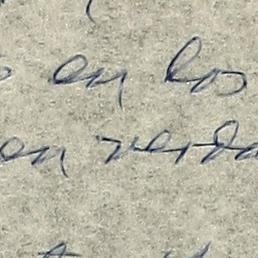 en los
en verda